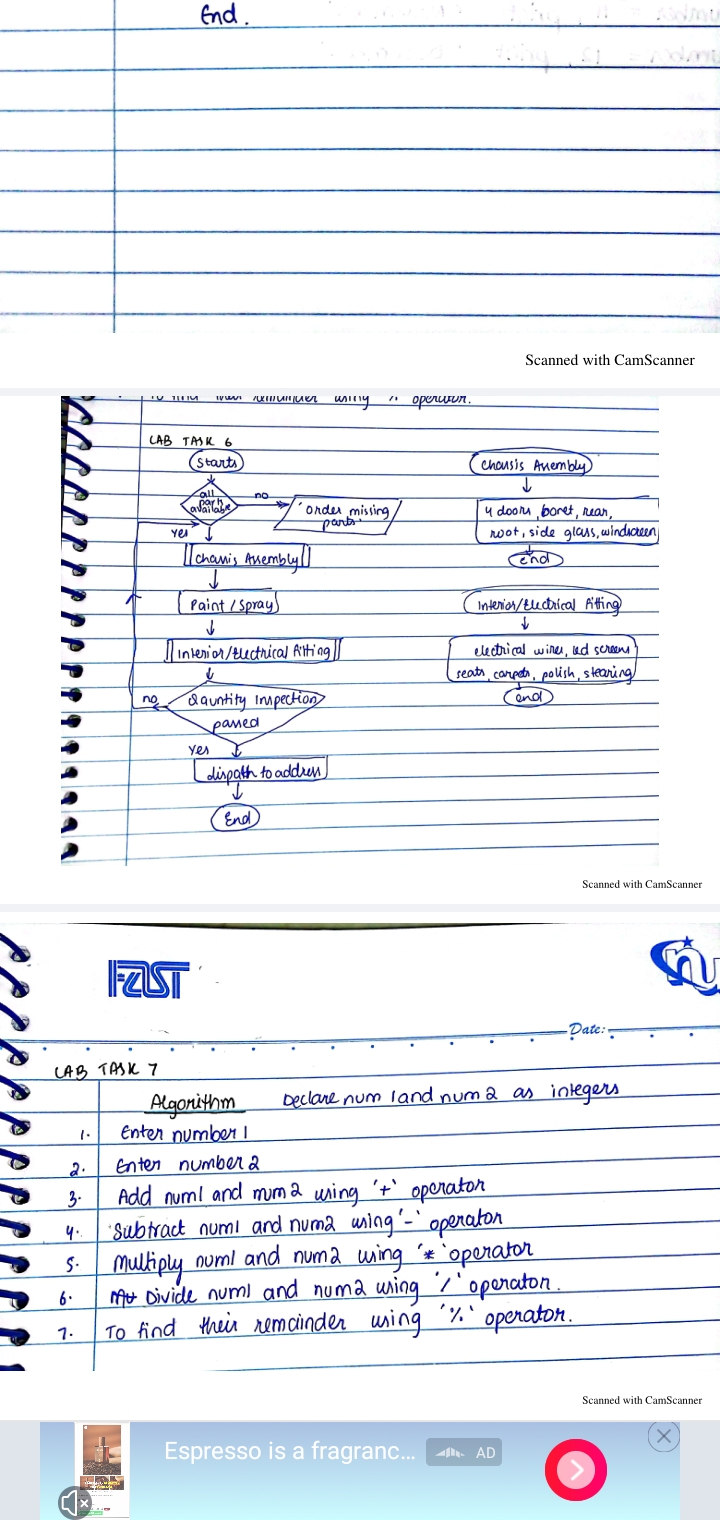 End.
Scanned with CamScanner
using % operator.
LAB TASK 6
Starts
all
parts
available
no
order mising
parts.
yes
Chassis Assembly
Paint / Spray
Interior/Electrical Fitting
no
Qauntity Inspection
passed
Yes
dispath to address
End
Chassis Assembly
4 doors, bonet, rear,
root, side glass, windscreen
end
Interior/Electrical Fitting
electrical wires, led screens
seats, carpets, polish, stearing
end
Scanned with CamScanner
FAST
Date:
LAB TASK 7
Algorithm Declare num 1 and num 2 as integers
1. Enter number 1
2. Enter number 2
3. Add num1 and num2 using '+' operator
4. Subtract num1 and num2 using '-' operator
5. Multiply num1 and num2 using '*' operator
6. Divide num1 and num2 using '/' operator.
7. To find their remainder using '%' operator.
Scanned with CamScanner
Espresso is a fragranc... AD